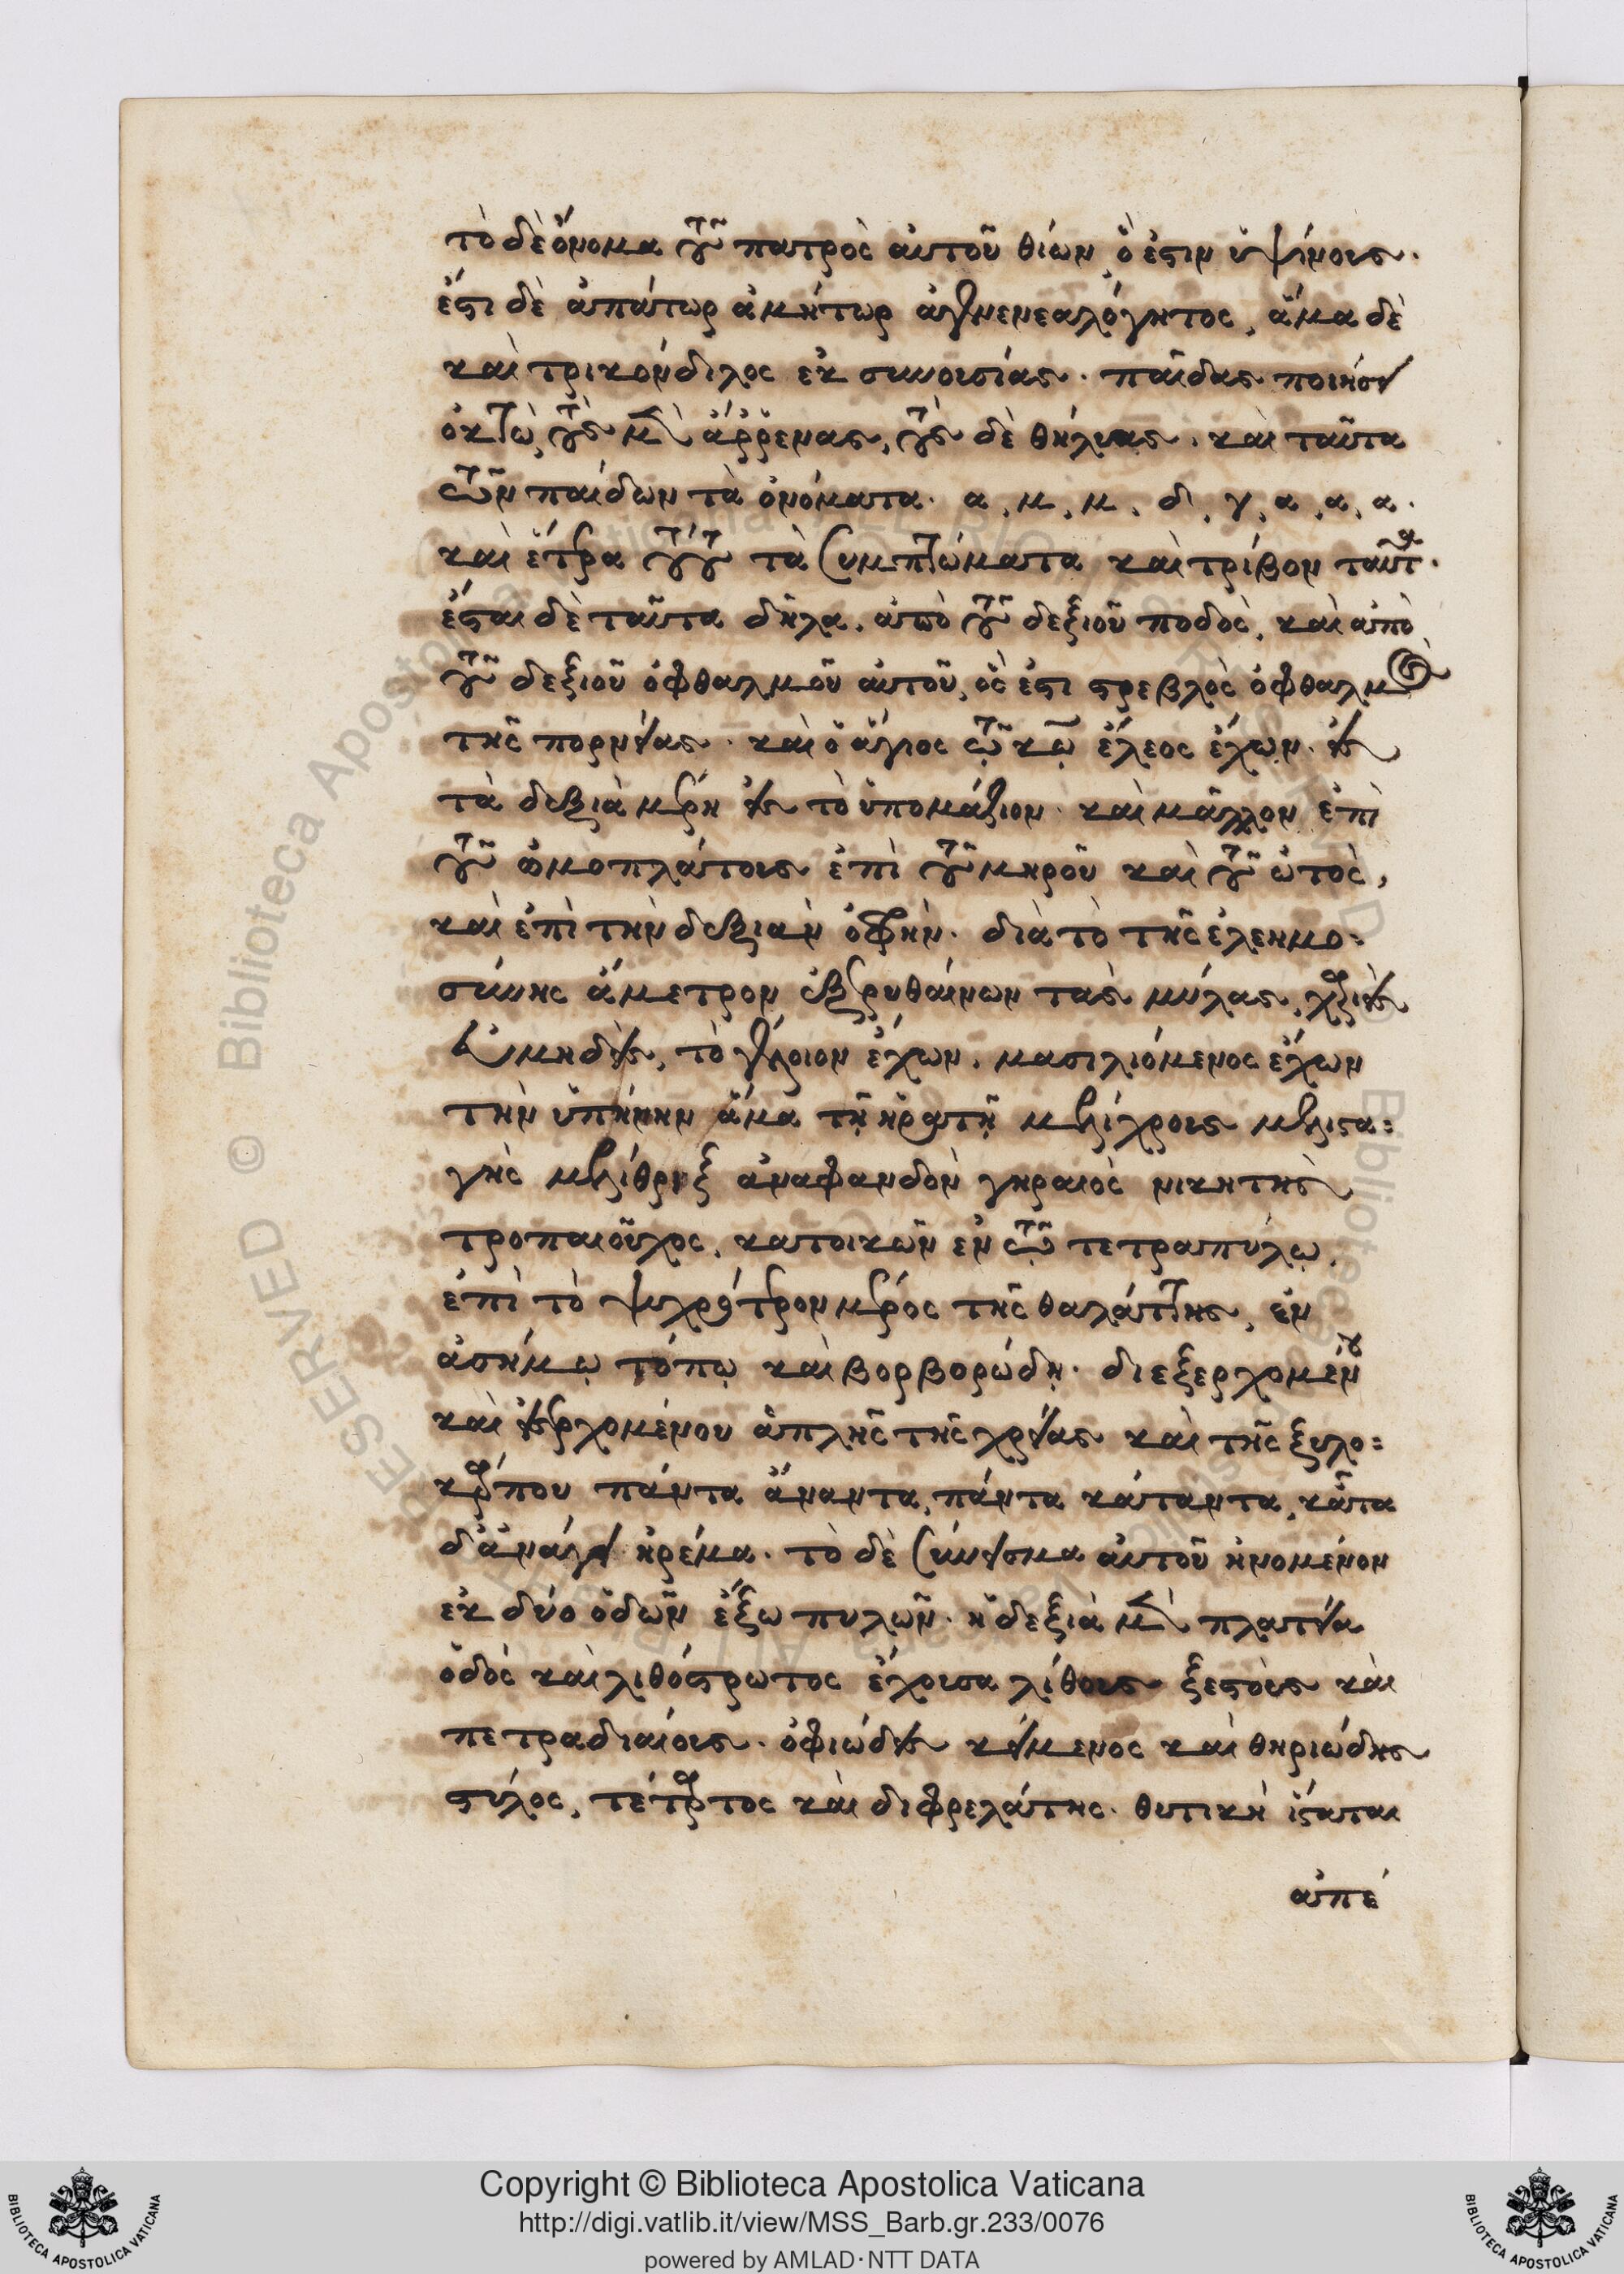 τὸ δὲ ὄνομα τοῦ πατρὸς αὐτοῦ θίων, ὅ ἐστιν ὑψίνους.
ἔστι δὲ ἀπάτωρ ἀμήτωρ ἀγενεαλόγητος, ἅμα δὲ
καὶ τρικόνδιλος ἐκ συνουσίας. παῖδας ποιήσει
ὀκτὼ, τοὺς μὲν ἄῤῥενας, τοὺς δὲ θήλυας. καὶ ταῦτα
τῶν παίδων τὰ ὀνόματα. α, μ, μ, δ, γ, α, α, α.
καὶ ἕτερα τούτου τὰ συμπτώματα καὶ τρίβον ταῦτα.
ἔσται δὲ ταῦτα δῆλα. ἀπὸ τοῦ δεξιοῦ ποδὸς, καὶ ἀπὸ
τοῦ δεξιοῦ ὀφθαλμοῦ αὐτοῦ, ὅς ἐστι στρεβλὸς ὀφθαλμὸς
τῆς πορνείας. καὶ ὁ ἅγιος τῷ κῷ ἔλεος ἔχων. εἰς
τὰ δεξιὰ μέρη εἰς τὸ ὑπομάζιον. καὶ μᾶλλον ἐπὶ
τοῦ ὠμοπλάτους ἐπὶ τοῦ μηροῦ καὶ τοῦ ὠτὸς,
καὶ ἐπὶ τὴν δεξιὰν ὀφρὴν. διὰ τὸ τῆς ἐλεημο=
σύνης ἄμετρον ἐξερυθαίνων τὰς μύλας,
μηδεὶς, τὸ γέλοιον ἔχων. μασιλιόμενος ἔχων
τὴν ὑπήνην ἅμα τῇ μελίχρους μελιστα=
γὴς μελίθριξ ἀναφανδὸν γηραιὸς νικητὴς
τροπαιοῦχος, κατοικῶν ἐν τῷ τετραπύλῳ.
ἐπὶ τὸ ψυχρότερον μέρος τῆς θαλάττης, ἐν
ἀσήμῳ τόπῳ καὶ βορβορώδῃ. διεξερχομένου
καὶ εἰσερχομένου ἁπλῆς τῆς χρείας καὶ τῆς ξυλο=
κάρπου πάντα ἄναντα, πάντα κάταντα, κᾆτα
δ' ἀνάγει ἠρέμα. τὸ δὲ σύνεισμα αὐτοῦ ἡνομένον
ἐκ δύο ὁδῶν ἔξω πυλῶν. ἡ δεξιὰ μὲν πλατεῖα
ὁδὸς καὶ λιθόστρωτος ἔχουσα λίθους ξεστοὺς καὶ
πετραδιαίους. ὀφιώδεις κείμενος καὶ θηριώδης
στύλος, τέταρτος καὶ διφρελάτης. θυτικὴ ἵσταται
ἀπέ
Copyright © Biblioteca Apostolica Vaticana
http://digi.vatlib.it/view/MSS_Barb.gr.233/0076
powered by AMLAD·NTT DATA